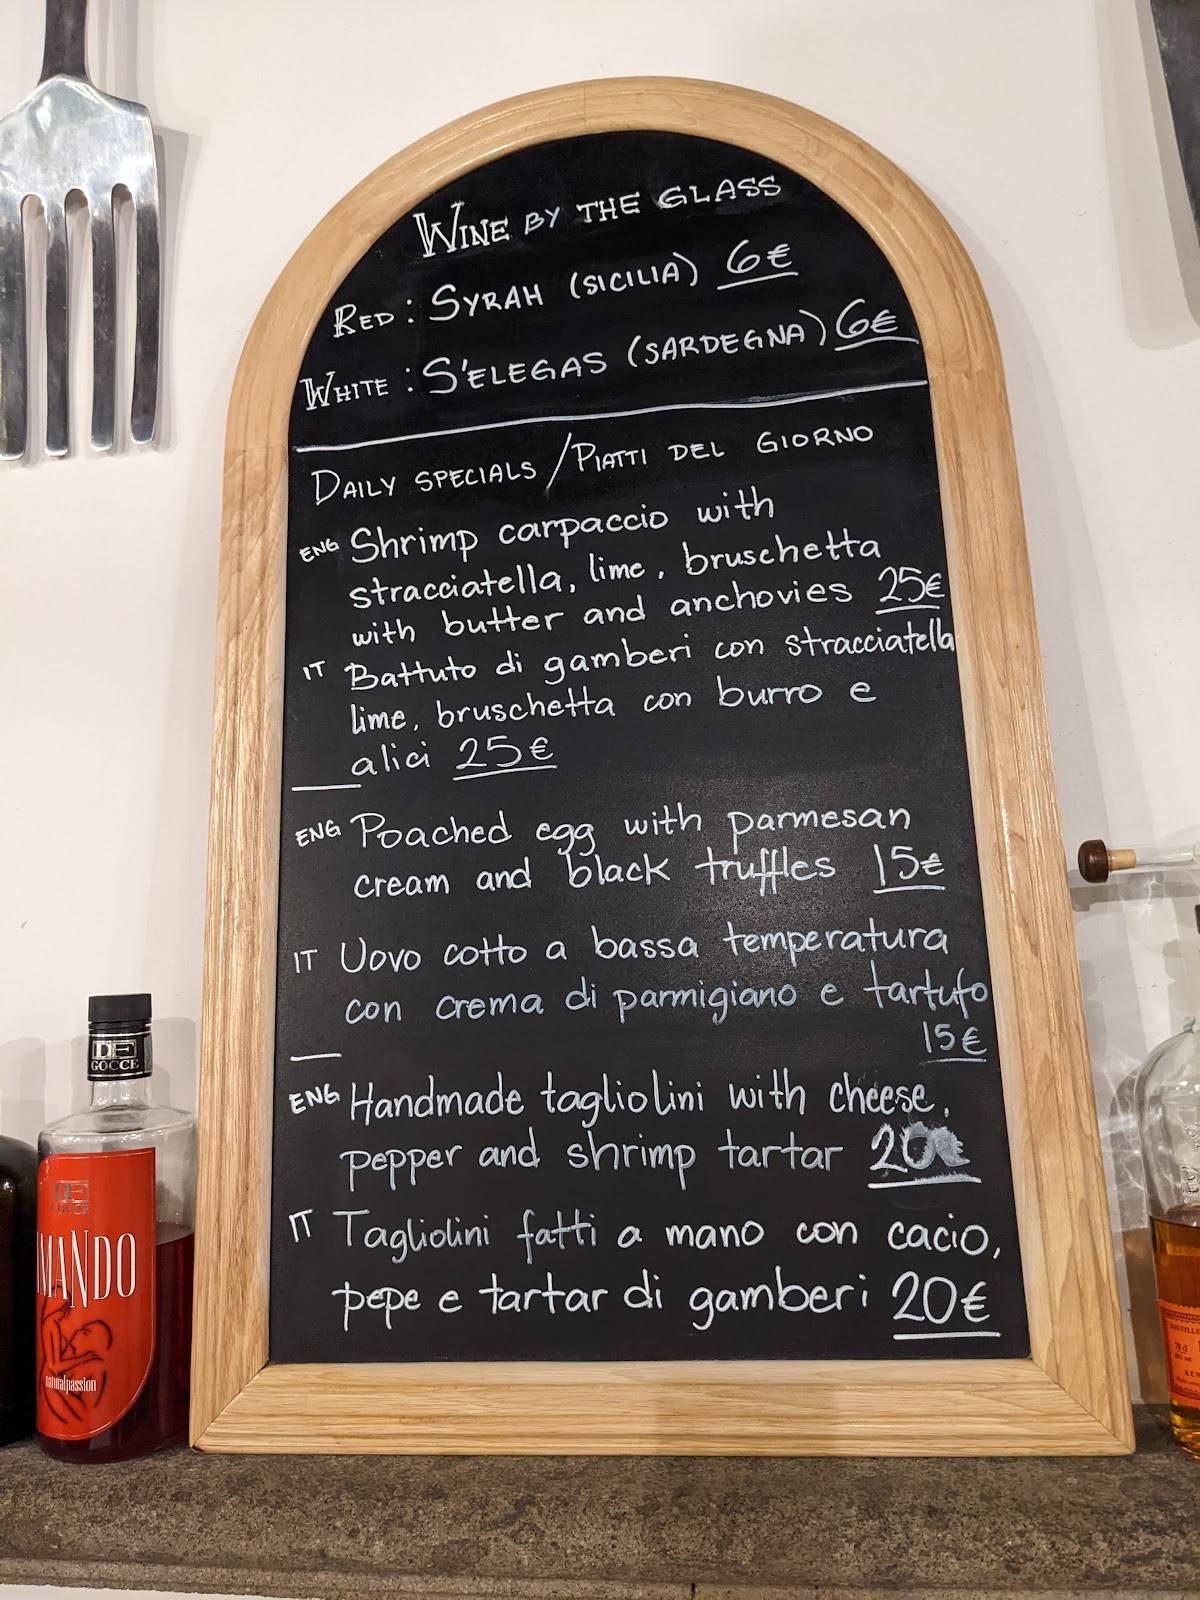 WINE BY THE GLASS
RED : SYRAH (SICILIA) 6€
WHITE : S'ELEGAS (SARDEGNA) 6€
DAILY SPECIALS / PIATTI DEL GIORNO
ENG Shrimp carpaccio with
stracciatella, lime, bruschetta
with butter and anchovies 25€
IT Battuto di gamberi con stracciatella
lime, bruschetta con burro e
alici 25€
ENG Poached egg with parmesan
cream and black truffles 15€
IT Uovo cotto a bassa temperatura
con crema di parmigiano e tartufo
15€
ENG Handmade tagliolini with cheese,
pepper and shrimp tartar 20€
IT Tagliolini fatti a mano con cacio,
pepe e tartar di gamberi 20€
DE
GOCCE
DE
GOCCE
MANDO
naturalpassion
70 cl